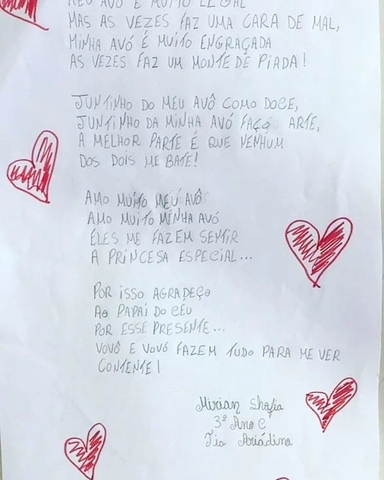 MEU AVÔ É MUITO LEGAL
MAS AS VEZES FAZ UMA CARA DE MAL,
MINHA AVÓ É MUITO ENGRAÇADA
AS VEZES FAZ UM MONTE DE PIADA!
JUNTINHO DO MEU AVÔ COMO DOCE,
JUNTINHO DA MINHA AVÓ FAÇO ARTE,
A MELHOR PARTE É QUE NENHUM
DOS DOIS ME BATE!
AMO MUITO MEU AVÔ
AMO MUITO MINHA AVÓ
ELES ME FAZEM SENTIR
A PRINCESA ESPECIAL...
POR ISSO AGRADEÇO
AO PAPAI DO CÉU
POR ESSE PRESENTE...
VOVÔ E VOVÓ FAZEM TUDO PARA ME VER
CONTENTE!
Mirian Shofia
3º Ano C
Tia Ariádina